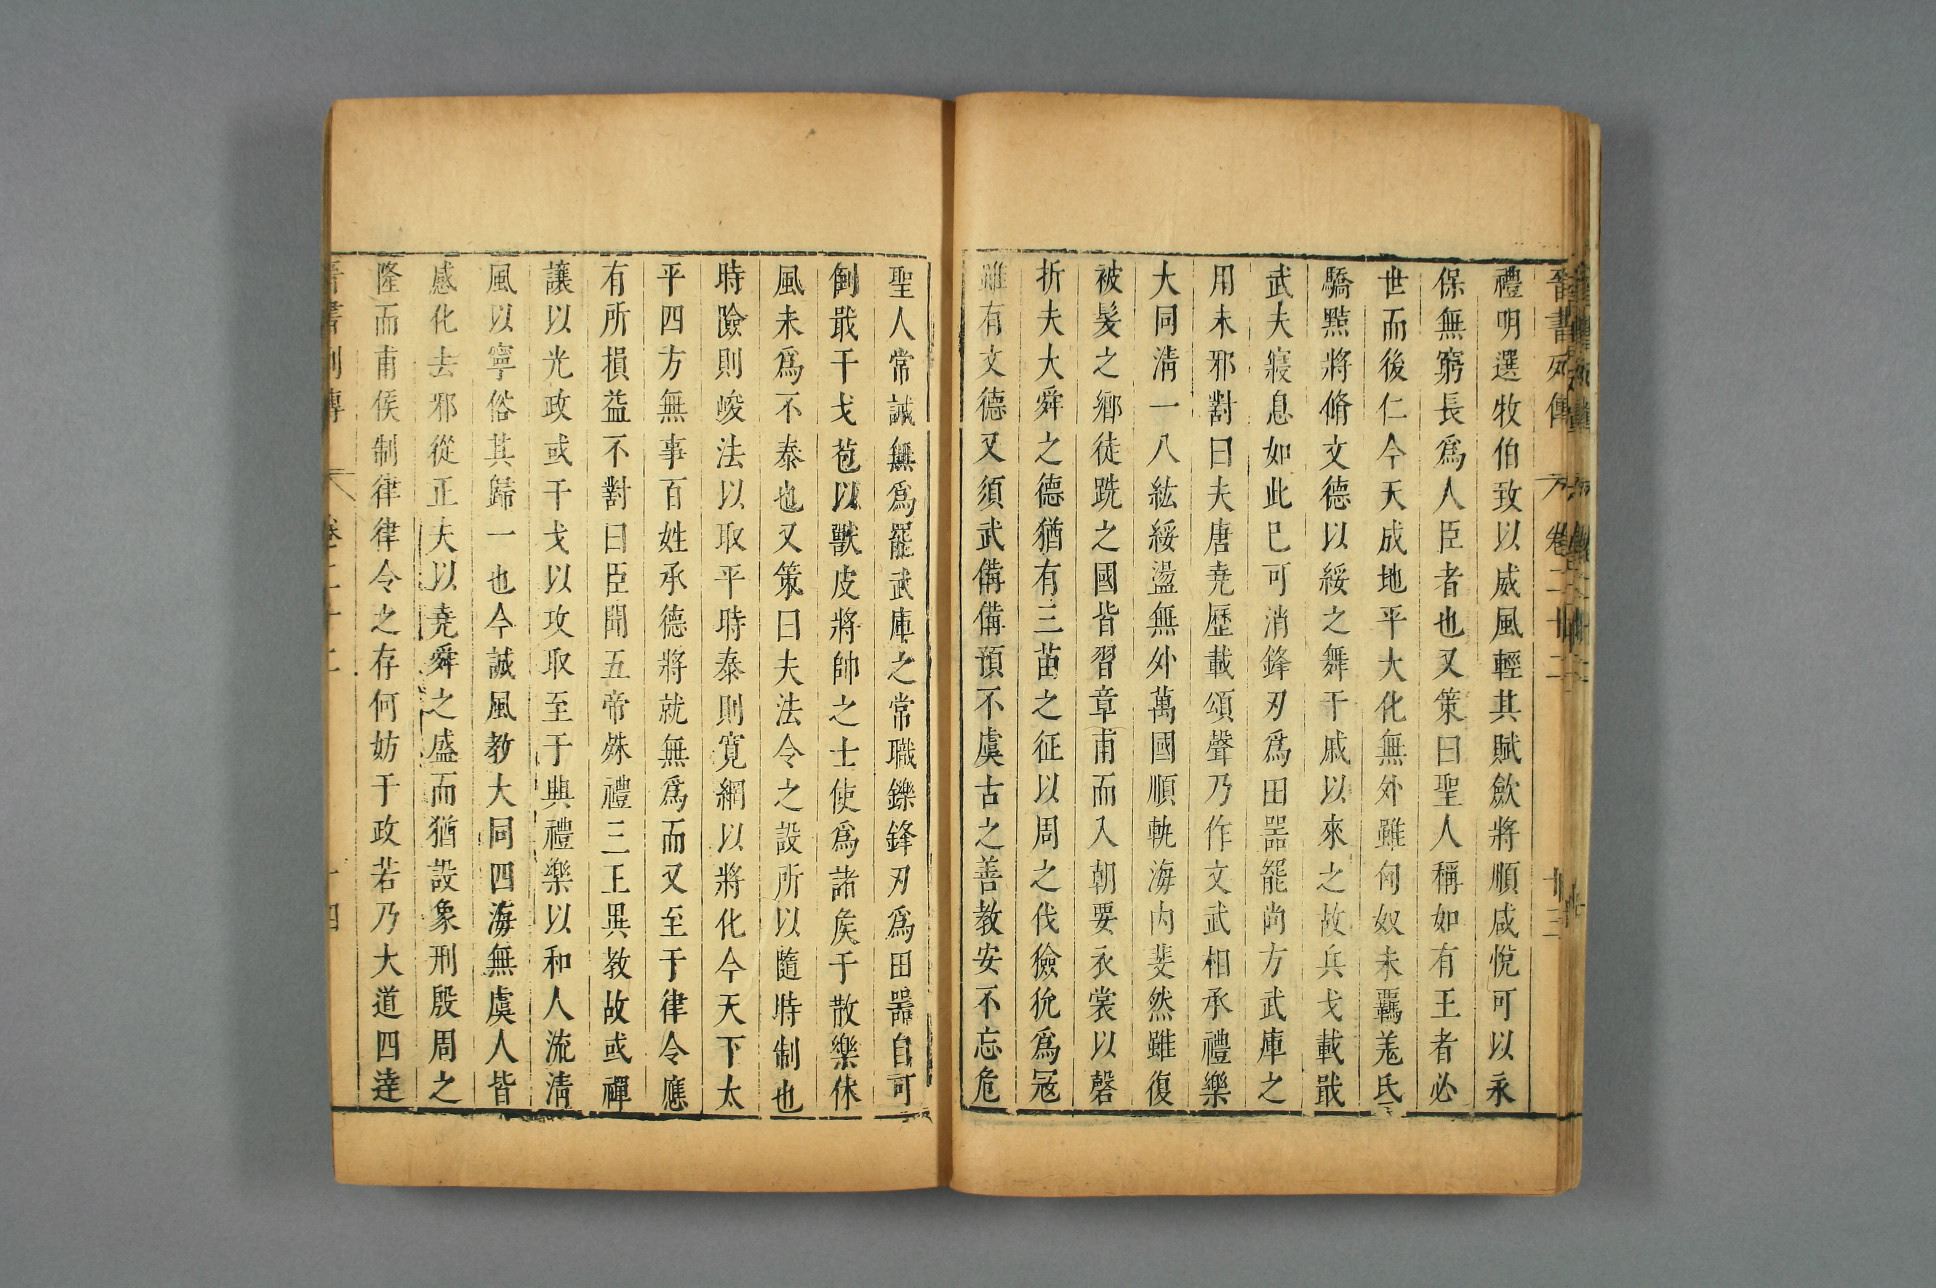 晉書列傳 卷二十二 十三
禮明選牧伯致以威風輕其賦斂將順咸悅可以永
保無窮長爲人臣者也又策曰聖人稱如有王者必
世而後仁今天成地平大化無外雖匈奴未羈羌氏
驕黠將脩文德以綏之舞干戚以來之故兵戈載戢
武夫寢息如此已可消鋒刃爲田器罷尚方武庫之
用未邪對曰夫唐堯歷載頌聲乃作文武相承禮樂
大同淸一八紘綏盪無外萬國順軌海內斐然雖復
被髮之鄉徒跣之國皆習章甫而入朝要衣裳以磬
折夫大舜之德猶有三苗之征以周之伐獫狁爲冦
雖有文德又須武備備預不虞古之善教安不忘危
聖人常誡無爲罷武庫之常職鑠鋒刃爲田器自可
倒戢干戈苞以獸皮將帥之士使爲諸侯于散樂休
風未爲不泰也又策曰夫法令之設所以隨時制也
時險則峻法以取平時泰則寬網以將化今天下太
平四方無事百姓承德將就無爲而又至于律令應
有所損益不對曰臣聞五帝殊禮三王異教故或禪
讓以光政或干戈以攻取至于興禮樂以和人流淸
風以寧俗其歸一也今誠風教大同四海無虞人皆
感化去邪從正夫以堯舜之盛而猶設象刑殷周之
隆而甫侯制律律令之存何妨于政若乃大道四達
晉書列傳 卷二十二 十四